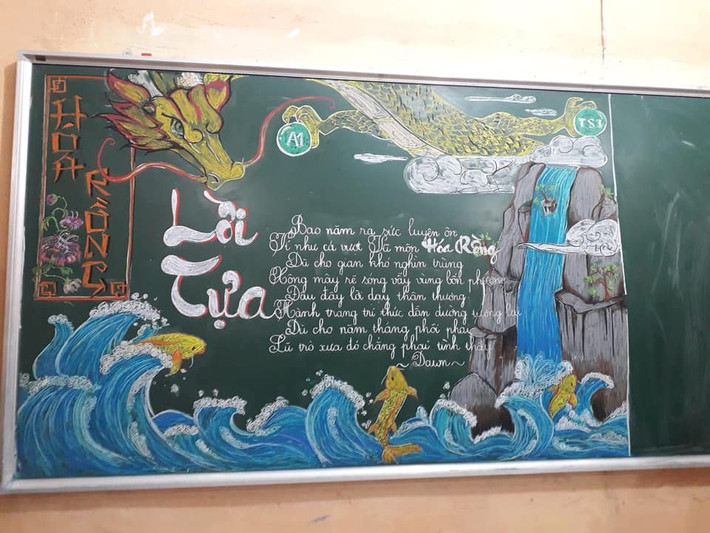 HOÁ
RỒNG
A1
Lời
Tựa
Bao năm ra sức luyện ôn
Ví như cá vượt Vũ môn Hóa Rồng
Dù cho gian khó nghìn trùng
Xông mây rẽ sóng vẫy vùng bốn phương
Đâu đây dạy thân thương
Hành trang tri thức dẫn đường tương lai
Dù cho năm tháng phôi phai
Lũ trò xưa đó chẳng phai tình thầy
~ Dawn ~